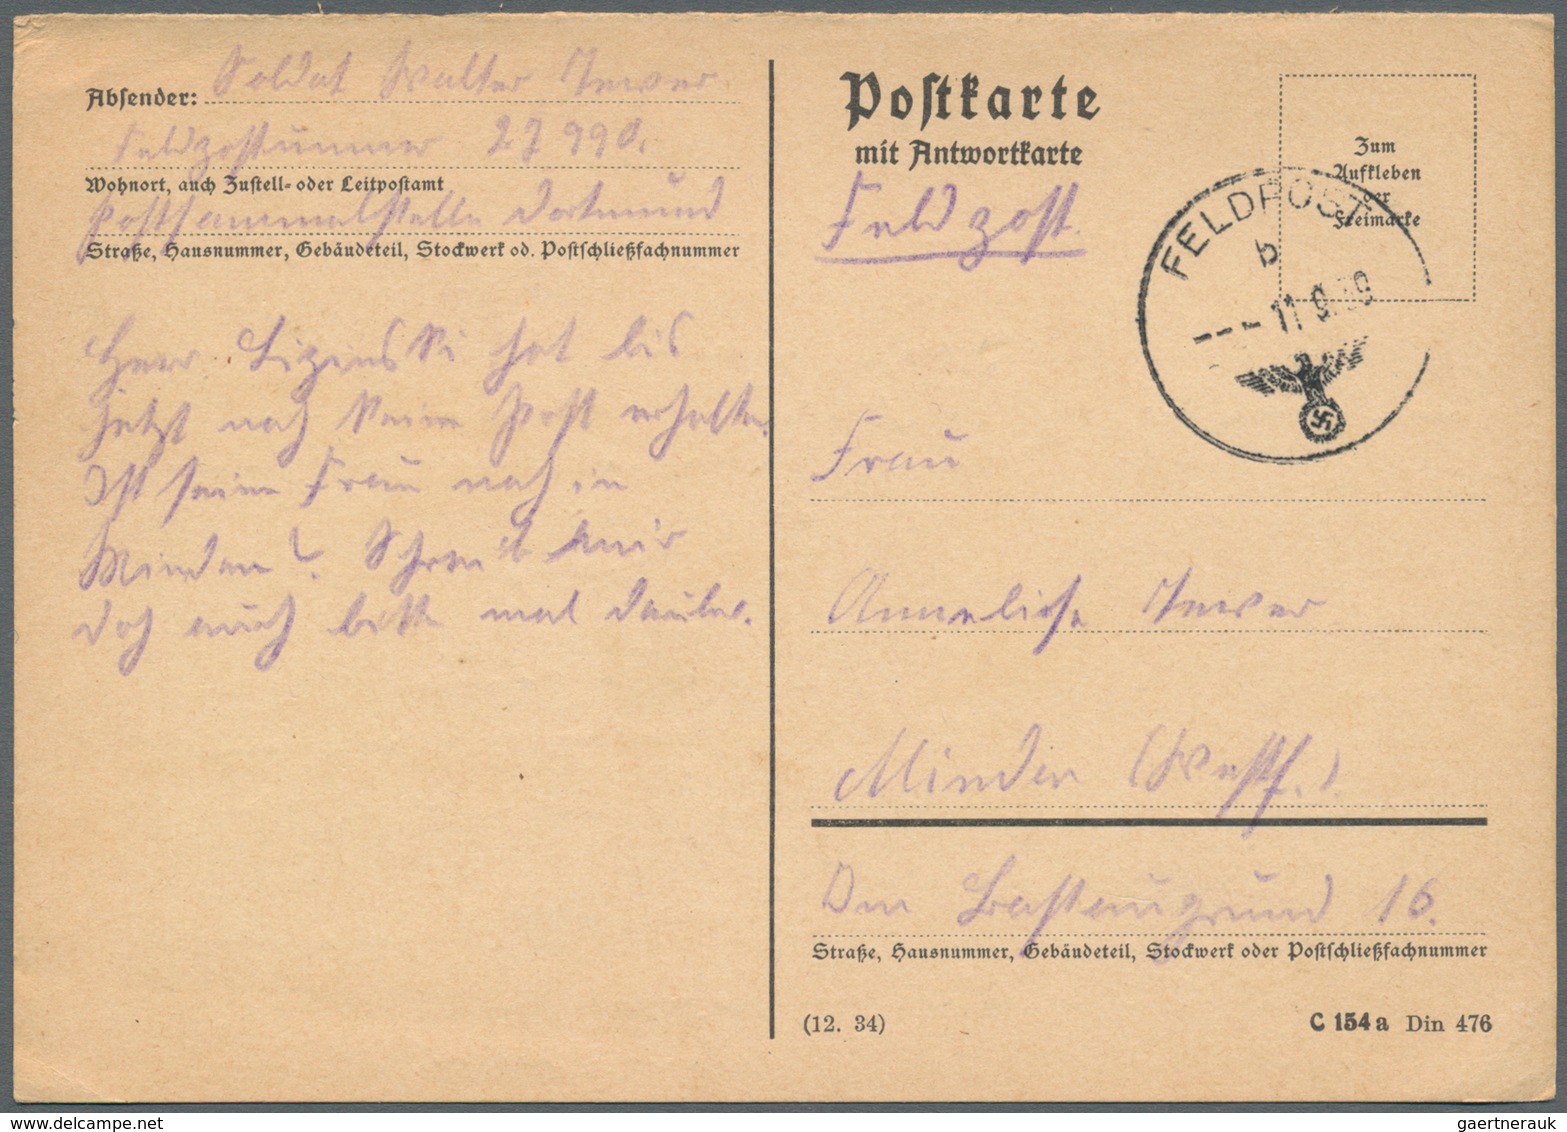 Absender: Soldat Walter Tewer
Feldpostnummer 27990.
Wohnort, auch Zustell- oder Leitpostamt
Postsammelstelle Dortmund
Straße, Hausnummer, Gebäudeteil, Stockwerk od. Postschließfachnummer
Herr hat bis
jetzt noch keine Post erhalten.
Ist seine Frau noch in
Minden? Schreib mir
doch auch bitte mal darüber.
Postkarte
mit Antwortkarte
Feldpost
Zum
Aufkleben
der
Freimarke
FELDPOST
b
--- 11.9.39
Frau
Anneliese Tewer
Minden (Westf.).
Am Bastaugrund 16.
Straße, Hausnummer, Gebäudeteil, Stockwerk oder Postschließfachnummer
(12. 34)
C 154a Din 476
gaertnerauk